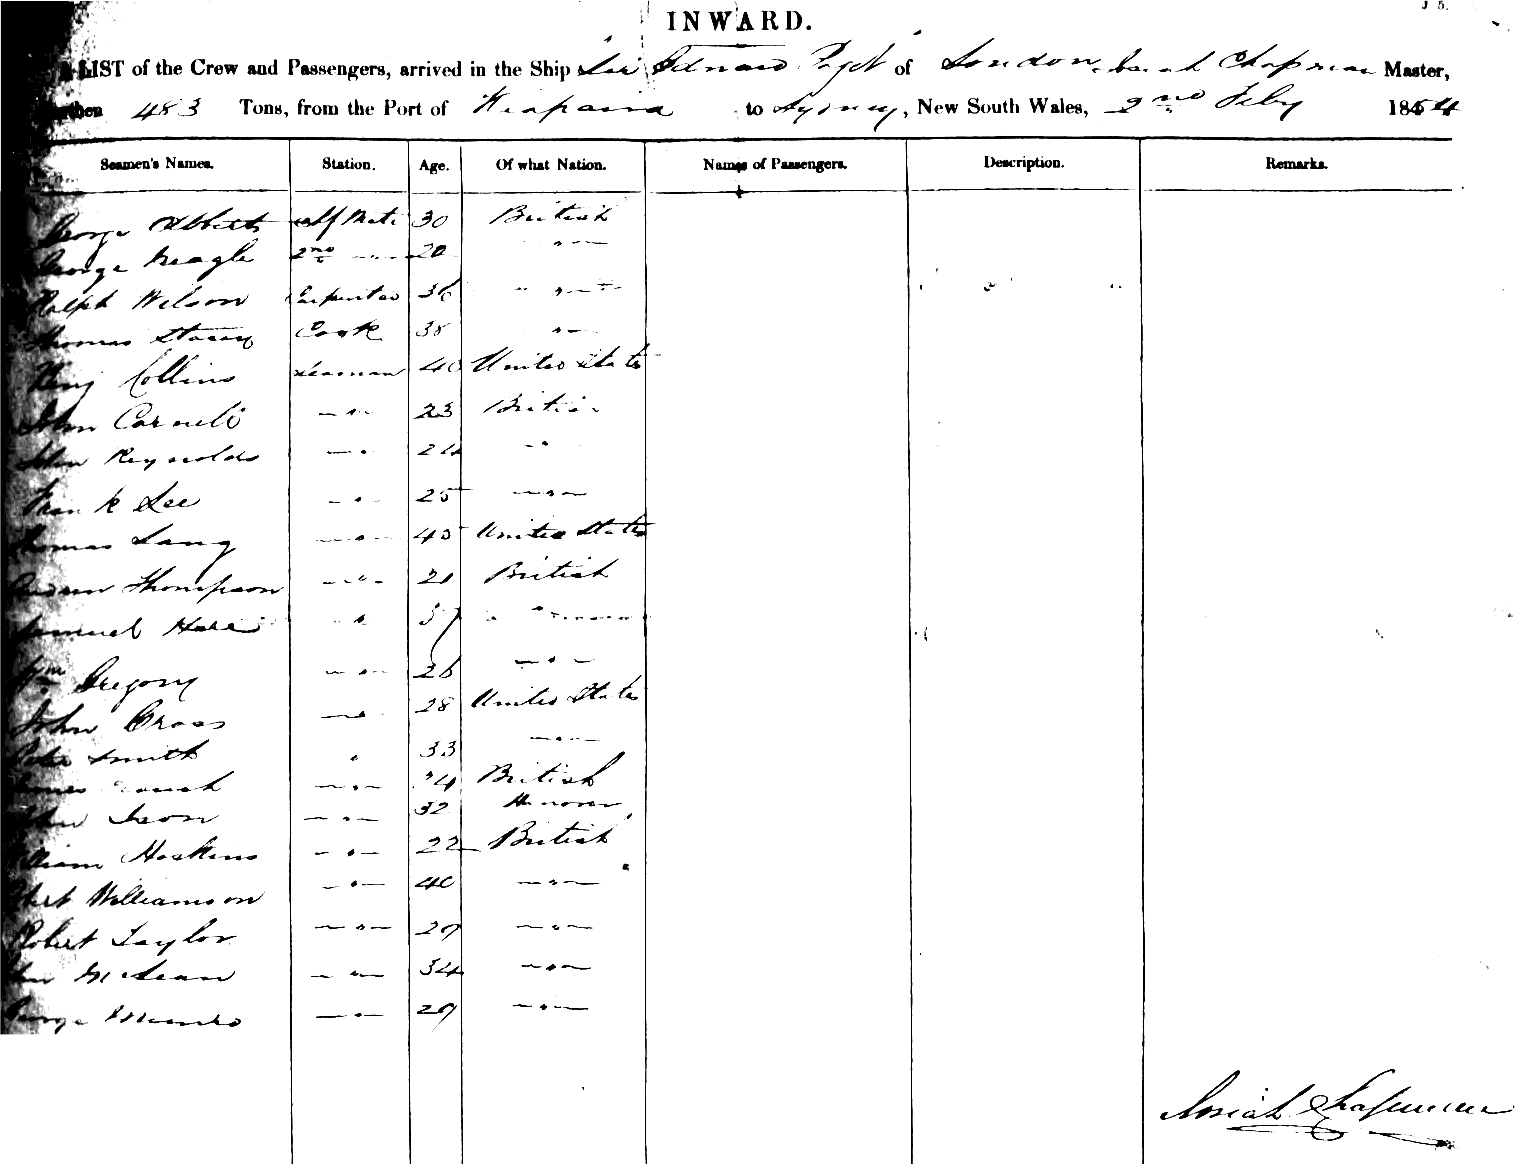 J 5.
INWARD.
LIST of the Crew and Passengers, arrived in the Ship Sir Edward Paget of London, Josiah Chapman Master,
Burthen 483 Tons, from the Port of to Sydney, New South Wales, 2nd Feby 1854
Seamen's Names. Station. Age. Of what Nation. Names of Passengers. Description. Remarks.
George Mate 30 British
George Neagle 2nd —"— 20 —"—
Ralph Wilson Carpenter 36 " —"—
Thomas Stacey Cook 38 "—
Henry Collins Seaman 40 United States
John —"— 23 British
John Reynolds —" 24 —"
Frank Lee —"— 25 —"—
Thomas Lang —"— 45 United States
Andrew Thompson —"— 21 British
Samuel " 37 "
Wm Gregory —"— 26 —"—
John Cross —" 28 United States
Peter Smith " 33 —"—
James —"— British
John —"— 32 Hanover
William Hoskins —"— 22 British
Robert Williamson —"— 40 —"—
Robert Taylor —"— 29 —"—
John McLean —"— 34 —"—
George Munro —"— 29 —"—
Josiah Chapman